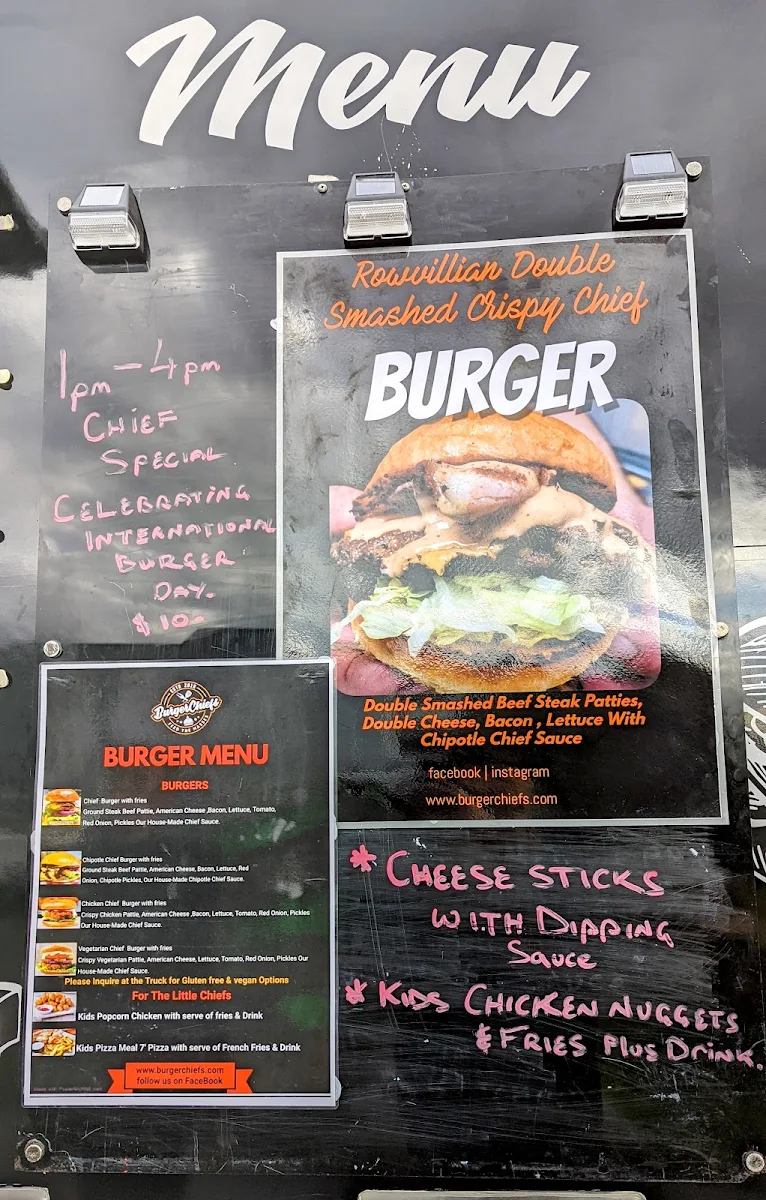 Menu
Rowvillian Double
Smashed Crispy Chief
BURGER
1pm - 4pm
CHIEF
SPECIAL
CELEBRATING
INTERNATIONAL
BURGER
DAY.
$10-
Double Smashed Beef Steak Patties,
Double Cheese, Bacon , Lettuce With
Chipotle Chief Sauce
facebook | instagram
www.burgerchiefs.com
ESTD 2019
BurgerChiefs
FEED THE MASSES
BURGER MENU
BURGERS
Chief Burger with fries
Ground Steak Beef Pattie, American Cheese ,Bacon, Lettuce, Tomato,
Red Onion, Pickles Our House-Made Chief Sauce.
Chipotle Chief Burger with fries
Ground Steak Beef Pattie, American Cheese, Bacon, Lettuce, Red
Onion, Chipotle Pickles, Our House-Made Chipotle Chief Sauce.
Chicken Chief Burger with fries
Crispy Chicken Pattie, American Cheese ,Bacon, Lettuce, Tomato, Red Onion, Pickles
Our House-Made Chief Sauce.
Vegetarian Chief Burger with fries
Crispy Vegetarian Pattie, American Cheese, Lettuce, Tomato, Red Onion, Pickles Our
House-Made Chief Sauce.
Please Inquire at the Truck for Gluten free & vegan Options
For The Little Chiefs
Kids Popcorn Chicken with serve of fries & Drink
Kids Pizza Meal 7' Pizza with serve of French Fries & Drink
www.burgerchiefs.com
follow us on FaceBook
* CHEESE STICKS
WITH DIPPING
SAUCE
* KIDS CHICKEN NUGGETS
& FRIES PLUS DRINK.